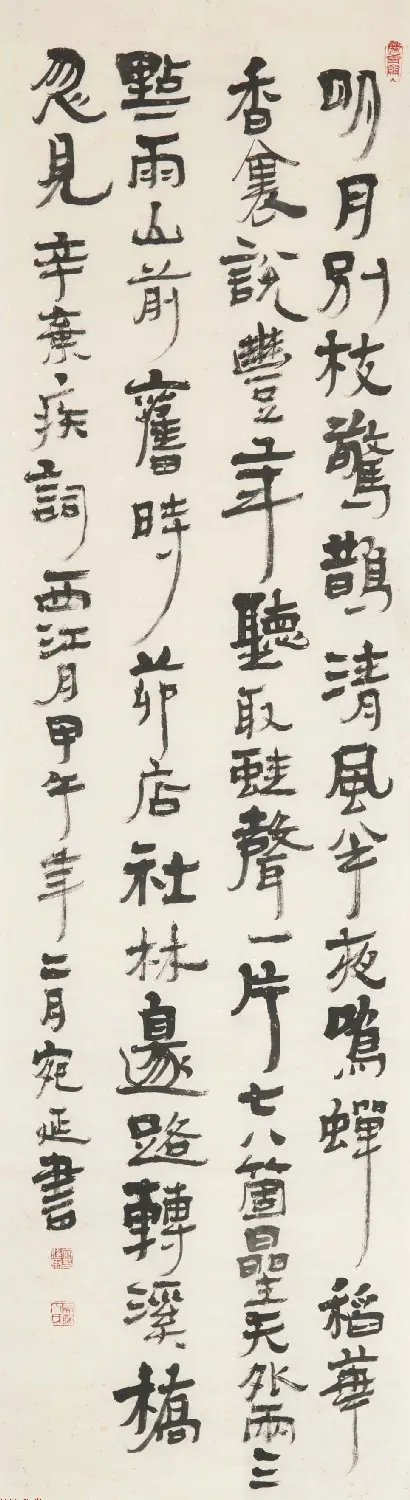 明月別枝驚鵲清風半夜鳴蟬稻華
香裏說豐年聽取蛙聲一片七八箇曐天外兩三
點雨山前舊時茆店社林邊路轉溪橋
忽見辛棄疾詞西江月甲午年二月宛延書